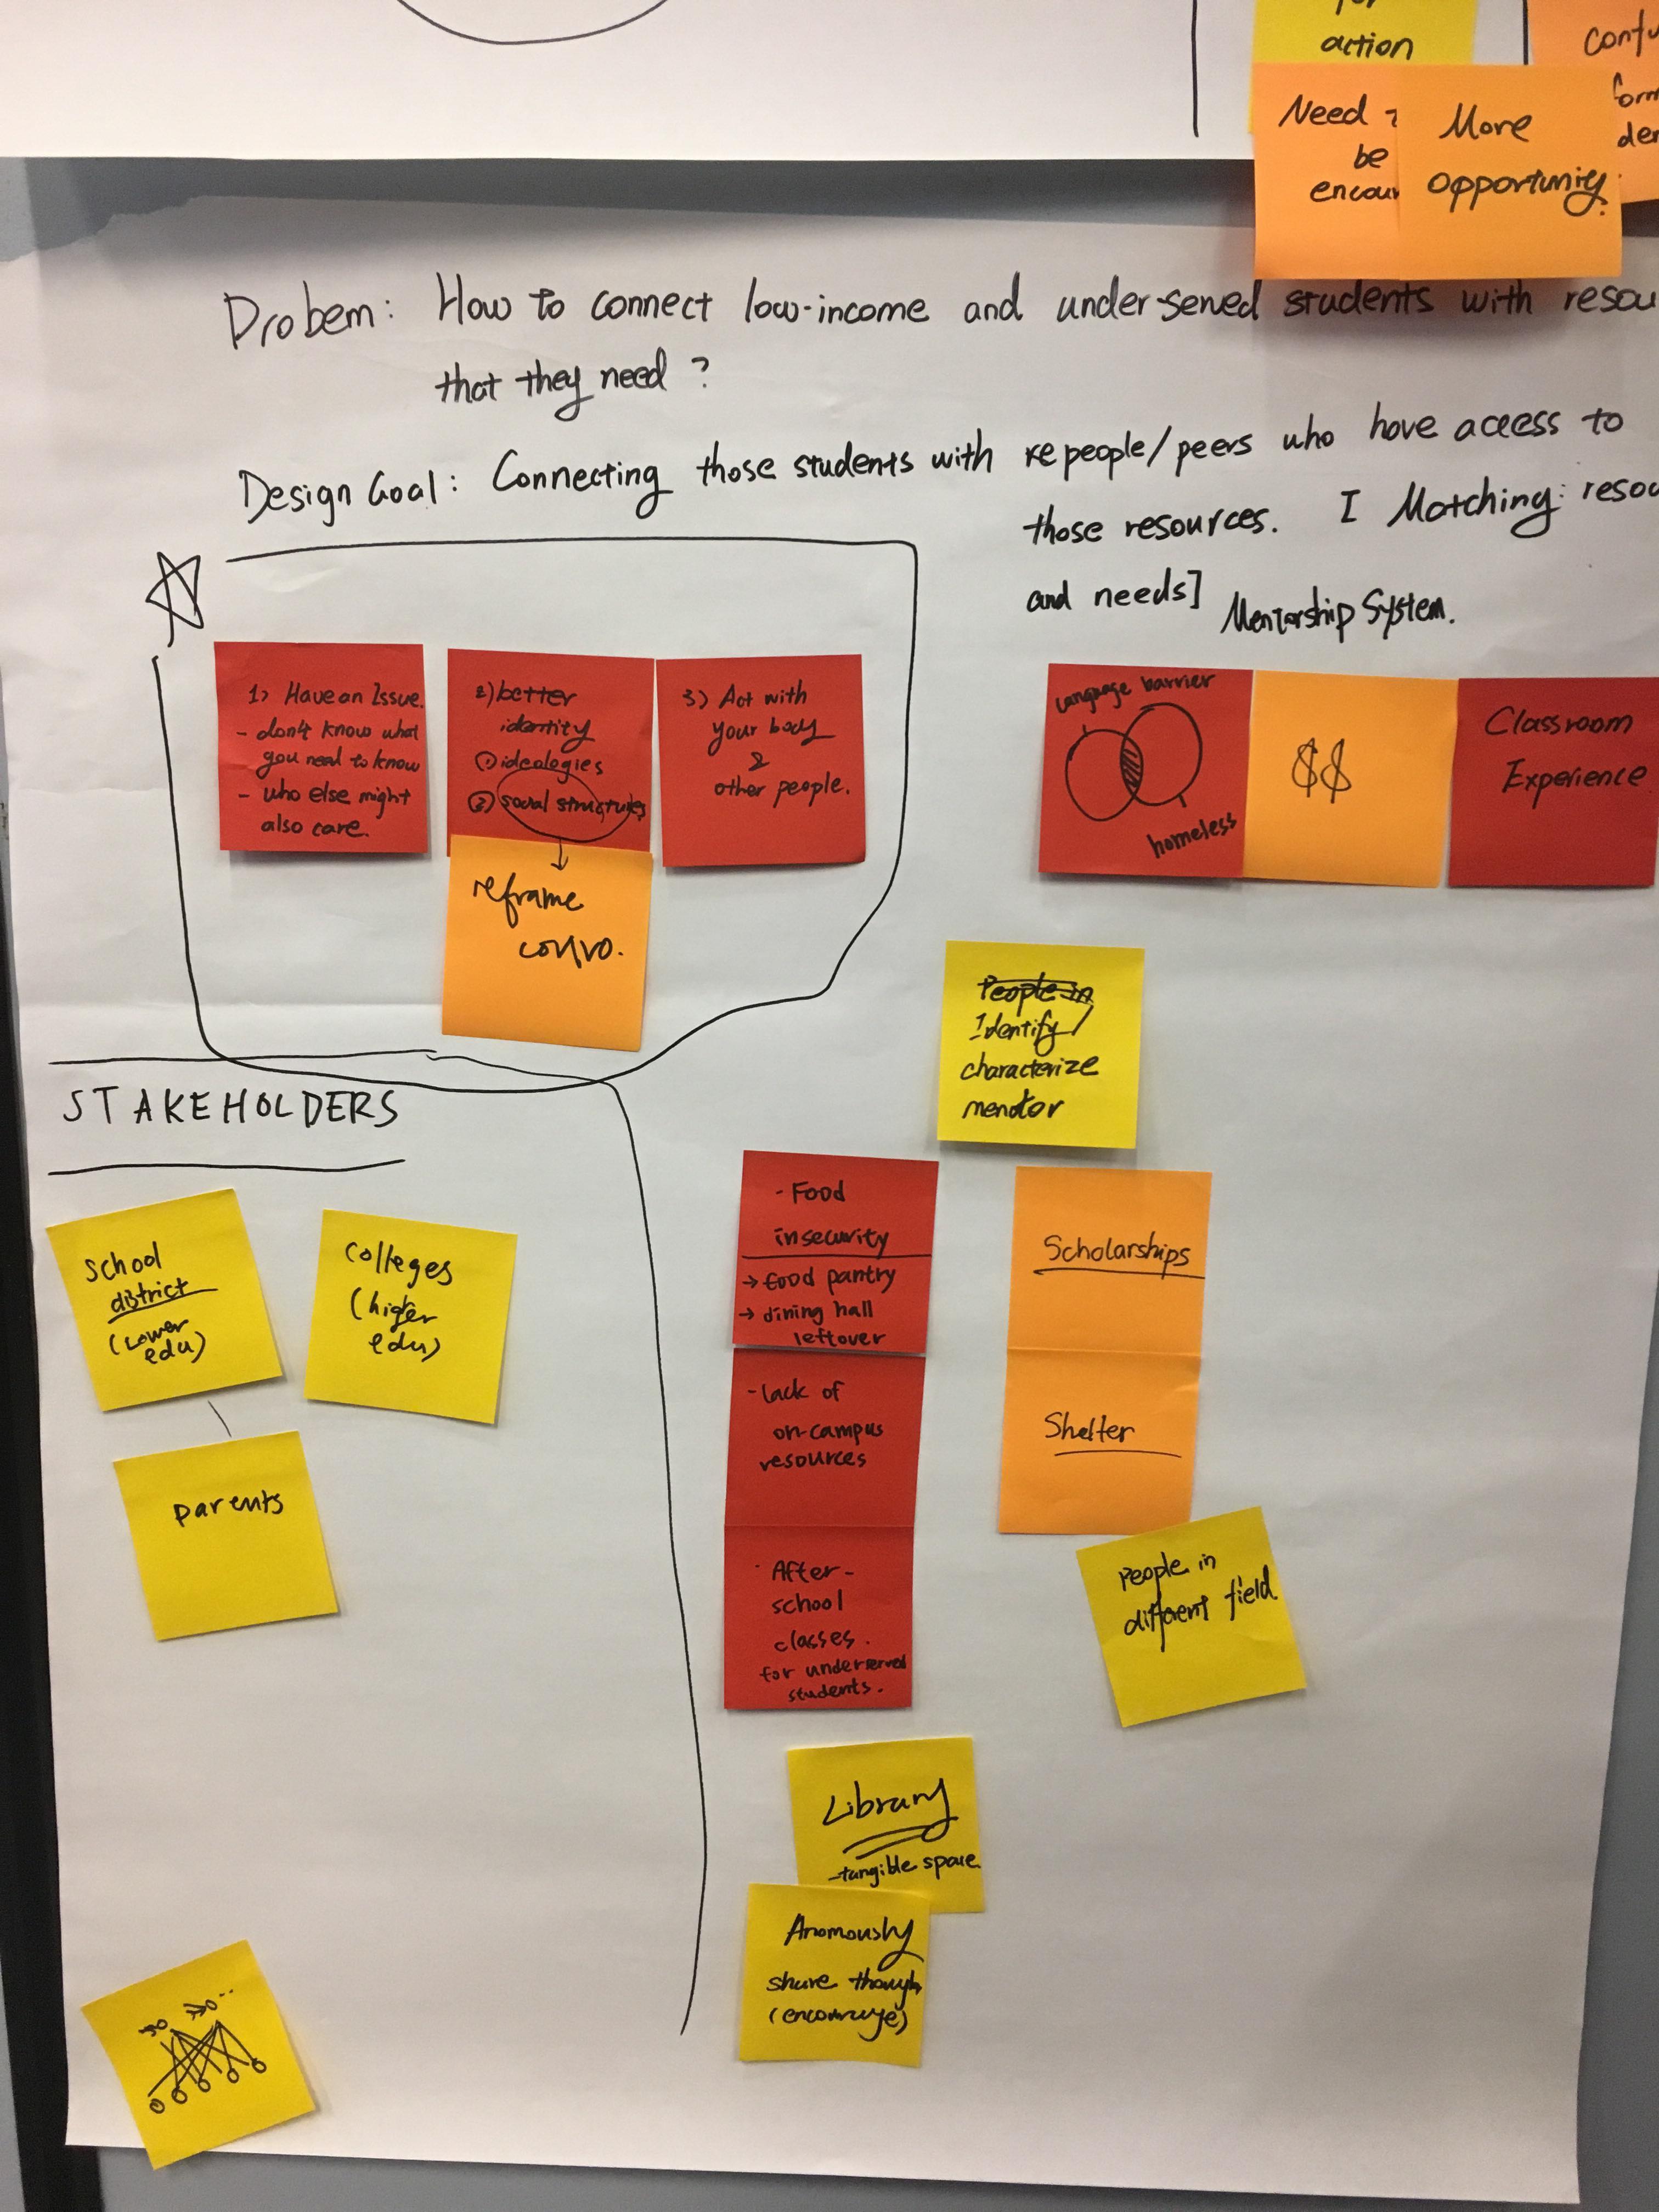 action
Need
be
More
opportunity.
Probem: How to connect low-income and under-served students with resou
that they need ?
Design Goal: Connecting those students with people/peers who have access to
those resources. I Matching: resou
and needs]
Mentorship System.
1) Have an Issue.
- don't know what
you need to know
- who else might
also care.
2) better
identity
① ideologies
② social structures
reframe
convo.
3) Act with
your body
&
other people.
Language barrier
homeless
$$
Classroom
Experience
People in
Identify
characterize
menotor
STAKEHOLDERS
school
district
(Lower
edu)
colleges
(higher
edu)
parents
- Food
insecurity
→ food pantry
→ dining hall
leftover
- lack of
on-campus
resources
- After-
school
classes.
for underserved
students.
Scholarships
Shelter
People in
different field
Library
- tangible space
Anomously
share though
(encourage)